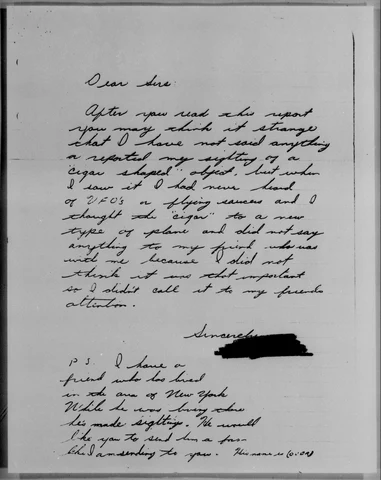 Dear Sirs:
After you read this report
you may think it strange
that I have not said anything
or reported my sighting of a
"cigar shaped" object, but when
I saw it I had never heard
of UFO's or flying saucers and I
thought the "cigar" to a new
type of plane and did not say
anything to my friend who was
with me because I did not
think it was that important
so I didn't call it to my friends
attention.
Sincerely
P.S. I have a
friend who has lived
in the area of New York
While he was living there
he made sightings. He would
like you to send him a
I am sending to you. His name is